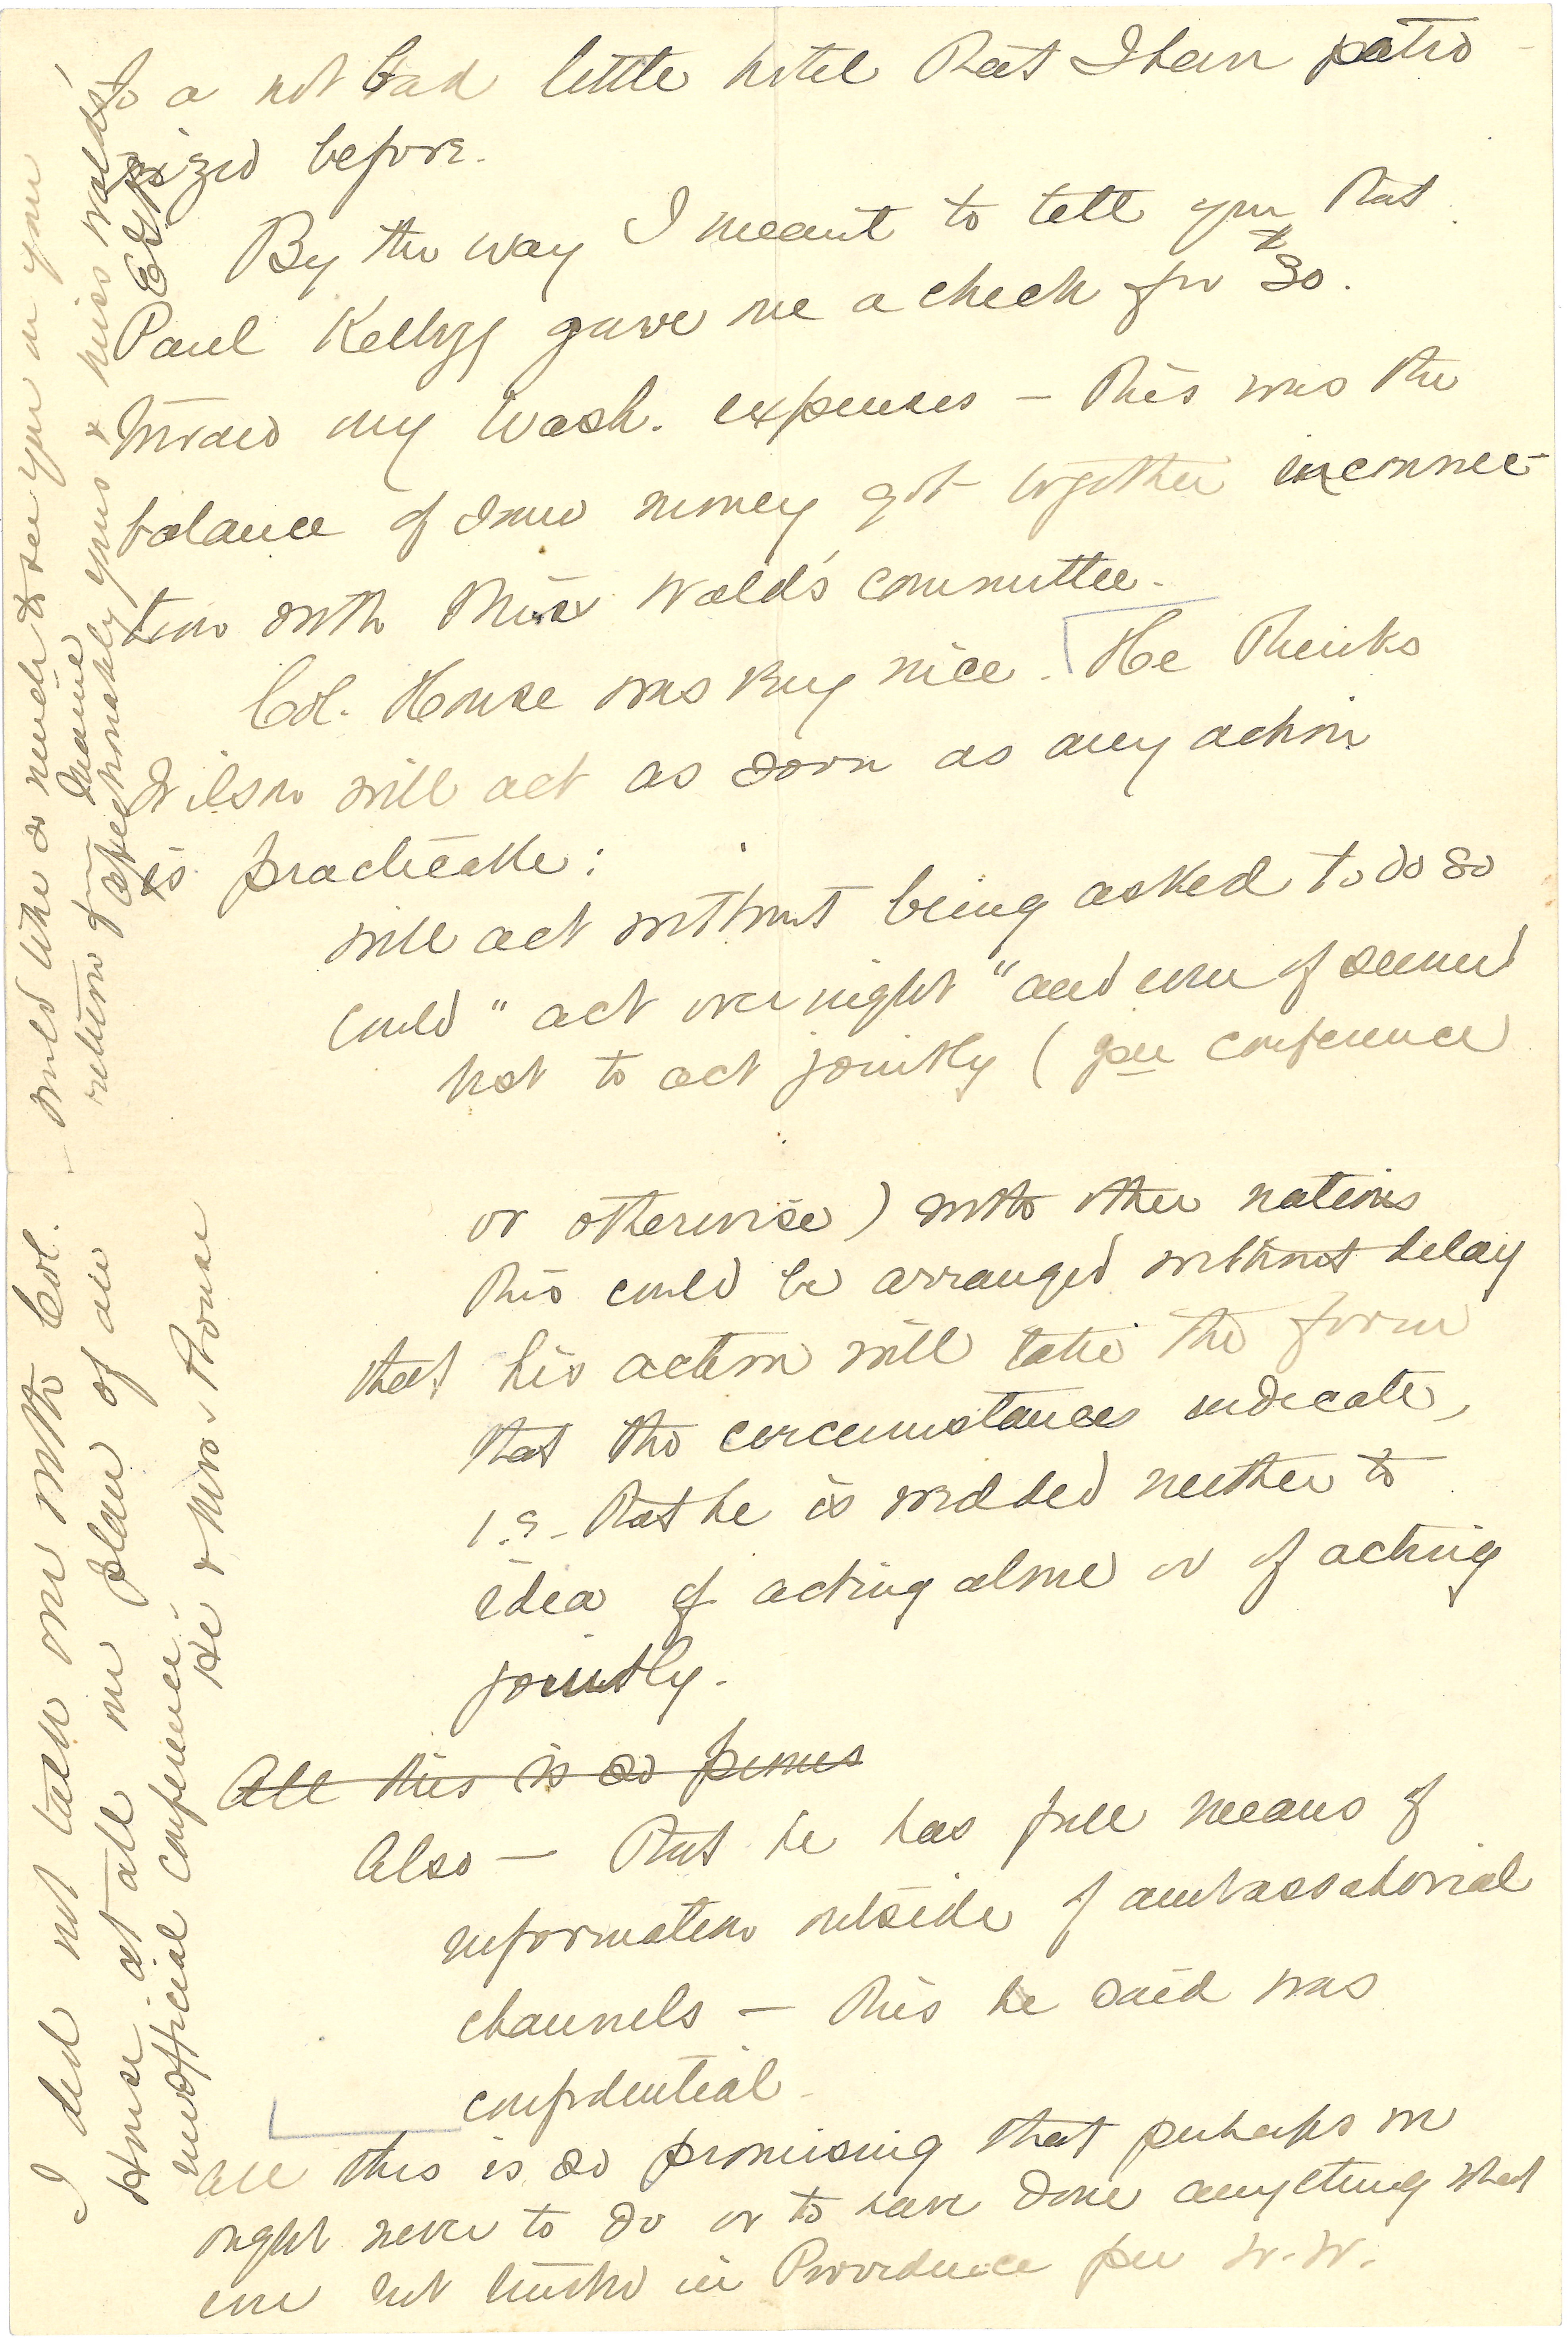 to a not bad little hotel that I have patro-
nized before.
By the way I meant to tell you that
Paul Kellogg gave me a check for $30.
toward my Wash. expenses – this was the
balance of some money got together in connec-
tion with Miss Wald's committee.
Col. House was very nice. He thinks
Wilson will act as soon as any action
is practicable:
will act without being asked to do so
could "act over night" and even if seemed
best to act jointly (per conference
or otherwise) with other nations
this could be arranged without delay
that his action will take the form
that the circumstances indicate,
i.e. that he is wedded neither to
idea of acting alone or of acting
jointly.
All this is so promis
Also – that he has full means of
information outside of ambassadorial
channels – this he said was
confidential.
All this is so promising that perhaps we
ought never to do or to have done anything but
just trust in Providence per W. W.
I did not talk over with Col.
House at all our plan of an
unofficial conference.
He & Mrs. House
would like so much to see you on your
return from Maine
affectionately yours & Miss Wald's
EGB